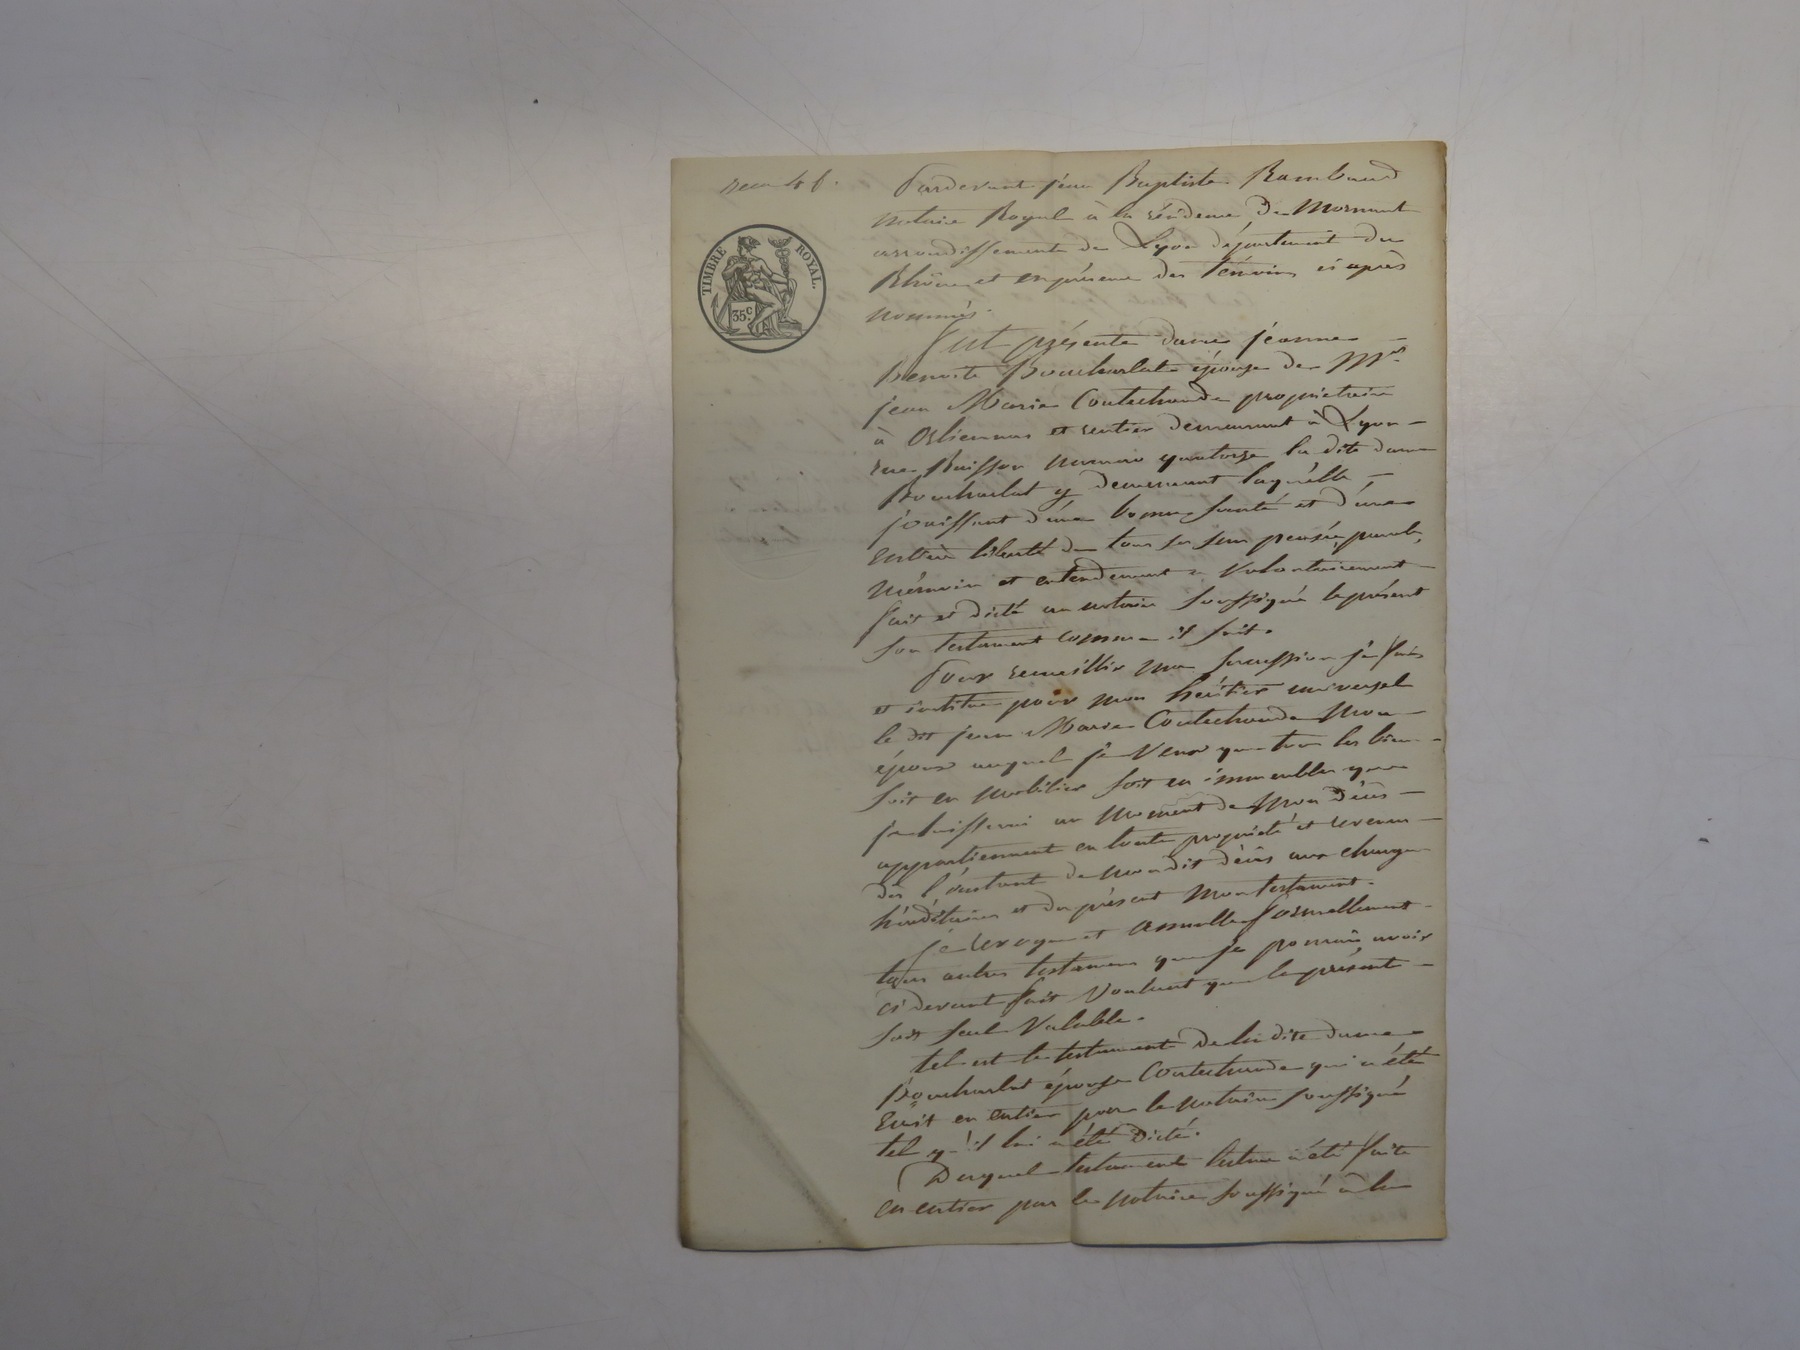 Pardevant jean Baptiste Rambaud
notaire Royal à la résidence de Mornant
arrondissement de Lyon département du
Rhône et en présence des témoins ci après
nommés.
TIMBRE ROYAL.
35c
fut présente dame jeanne
Benoite Boucharlat épouse de Mr
jean Marie Coutechaude propriétaire
à Orliennas et rentier demeurant à Lyon
rue Buisson numéro quatorze la dite dame
Boucharlat y demeurant laquelle
jouissant d'une bonne santé et d'une
entière liberté de tous ses sens pensée, parole,
mémoire et entendement a volontairement
fait et dicté au notaire soussigné le présent
son testament comme il suit.
Pour recueillir ma succession je fais
et institue pour mon héritier universel
le dit jean Marie Coutechaude mon
époux auquel je veux que tous les biens
soit en mobilier soit en immeubles que
je laisserai au moment de mon décès
appartiennent en toute propriété et revenu
dès l'instant de mon dit décès aux charges
héréditaires et du présent mon testament.
je révoque et annulle formellement
tous autres testamens que je pourrais avoir
ci devant fait voulant que le présent
soit seul valable.
tel est le testament de la dite dame
Boucharlat épouse Coutechaude qui a été
Ecrit en entier par le notaire soussigné
tel qu'il lui a été dicté.
Duquel testament lecture a été faite
en entier par le notaire soussigné à la